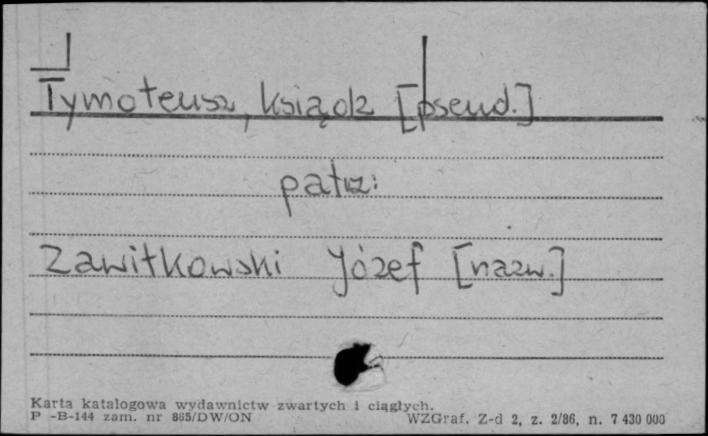 Tymoteusz, ksiądz [pseud.]
patrz:
Zawitkowski Józef [nazw.]
Karta katalogowa wydawnictw zwartych i ciągłych.
P -B-144 zam. nr 865/DW/ON WZGraf. Z-d 2, z. 2/86, n. 7 430 000